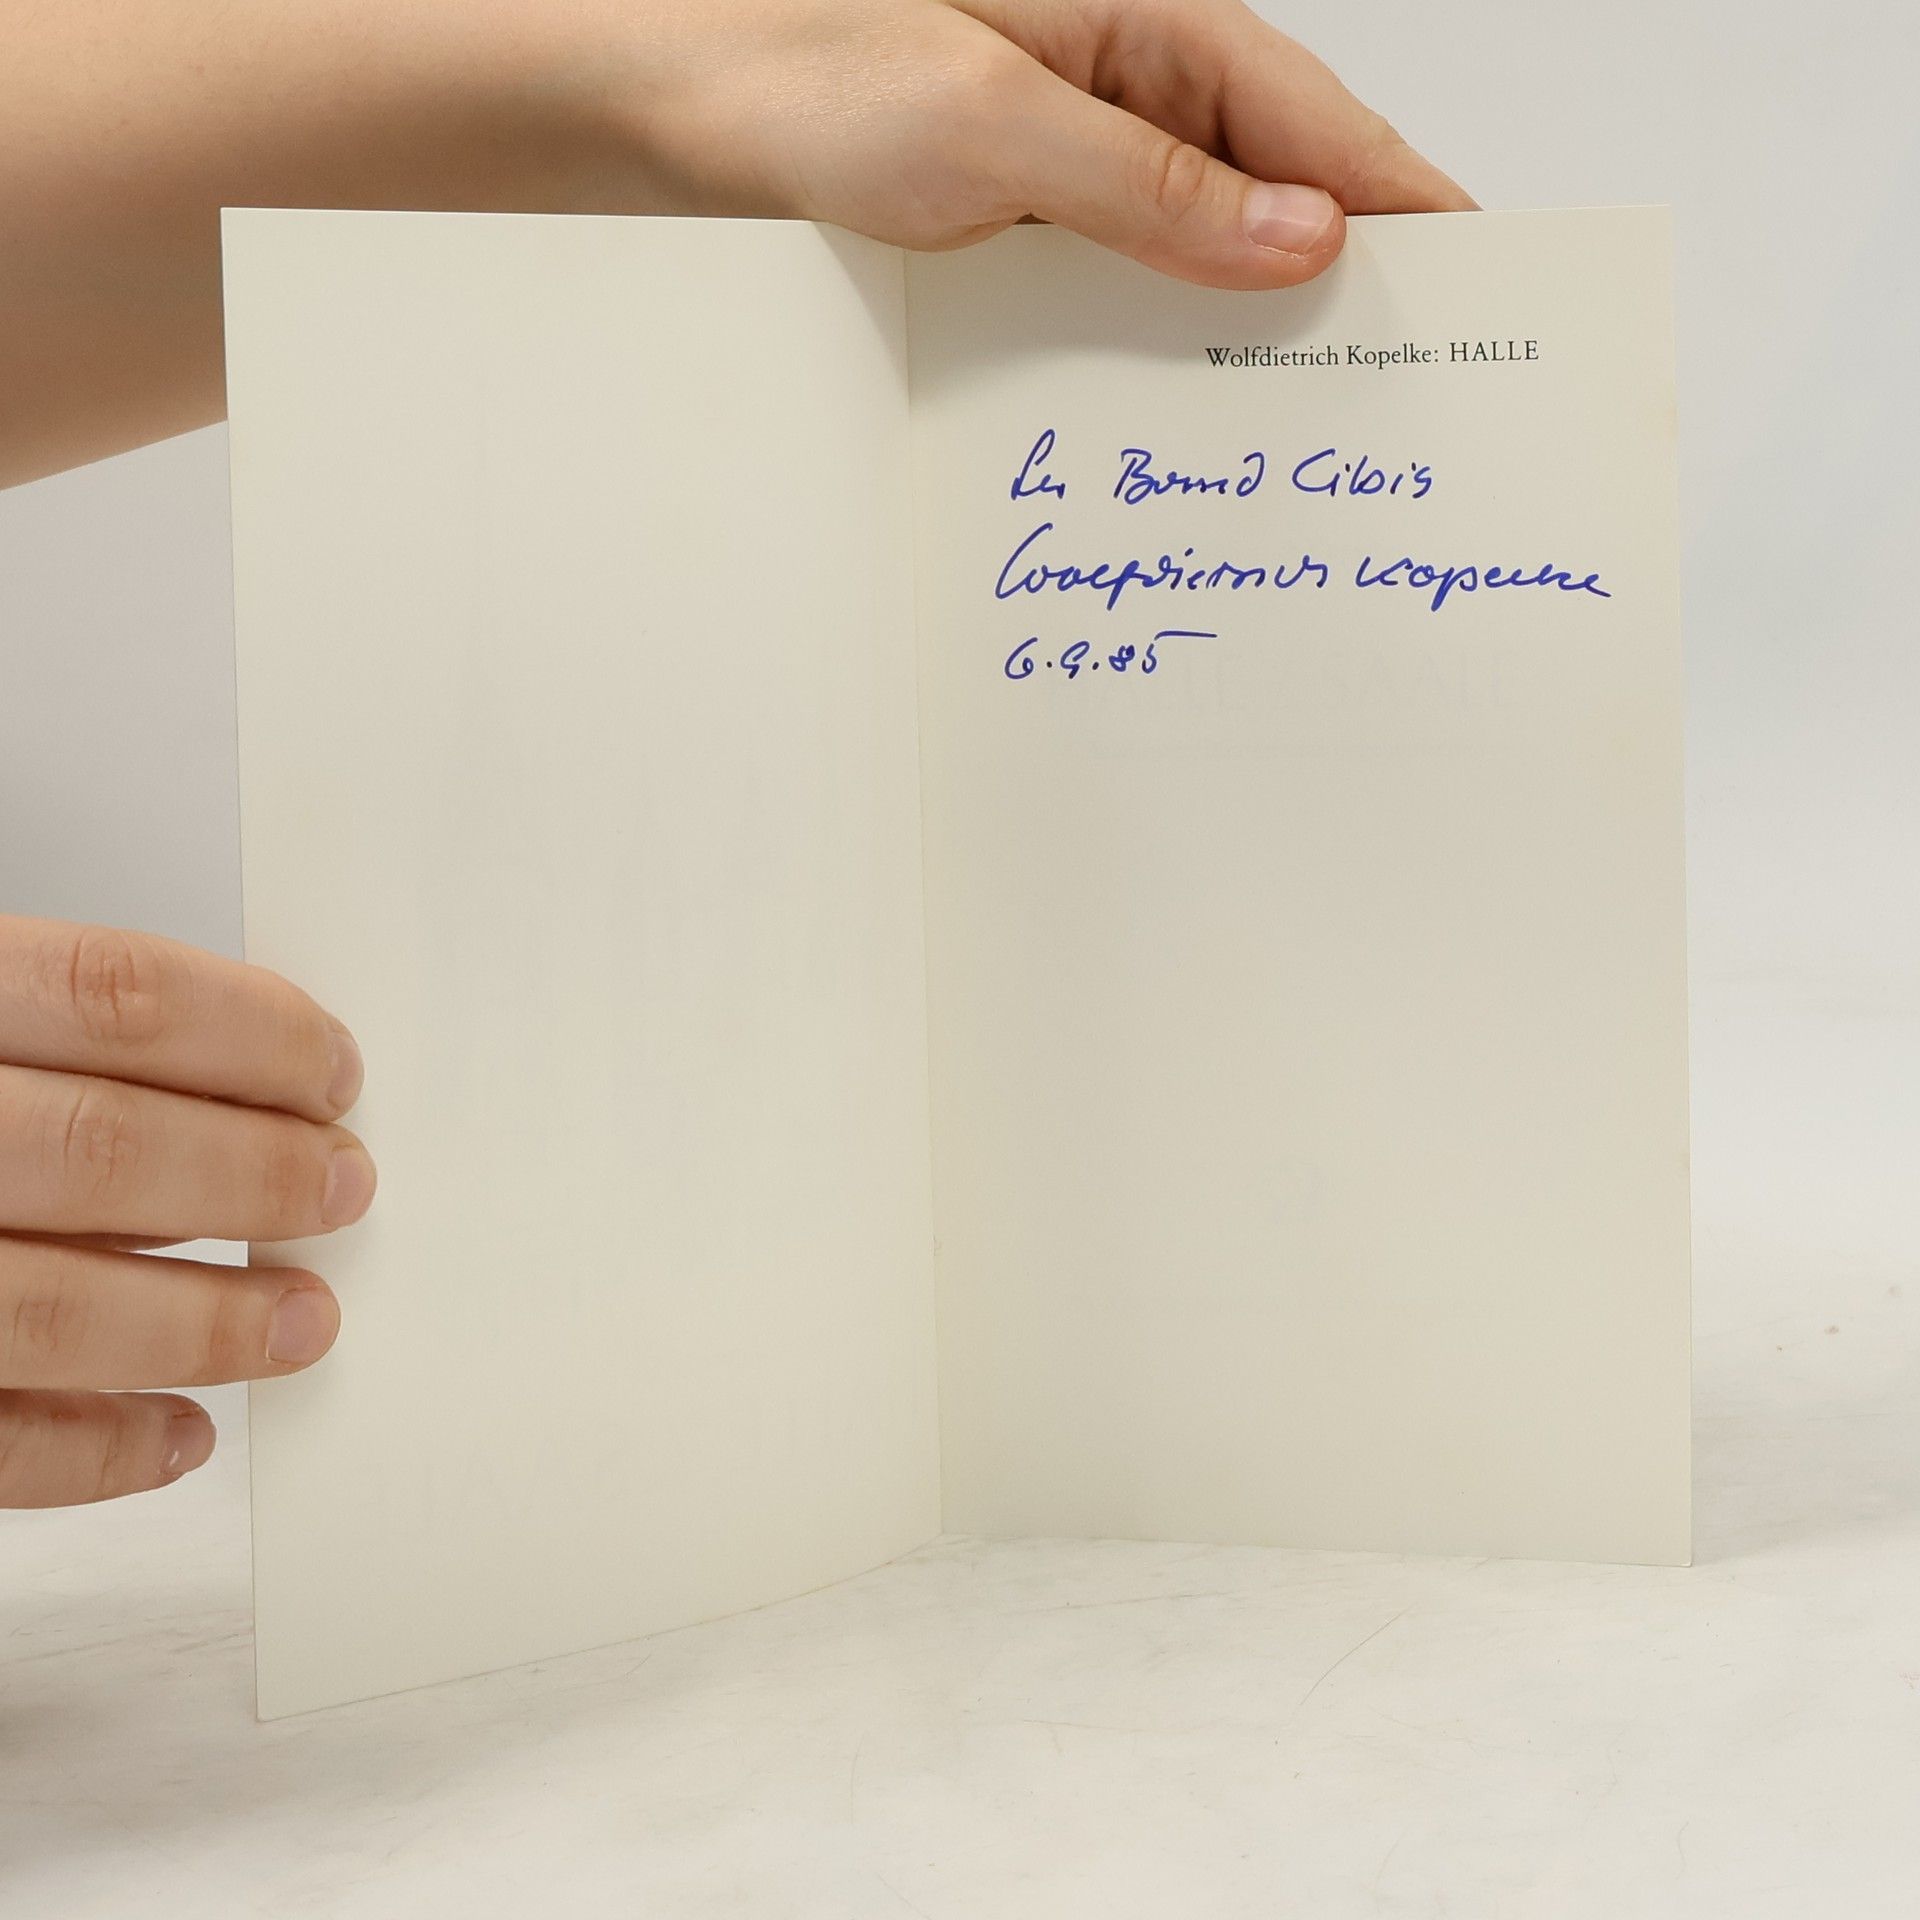 Wolfdietrich Kopelke: HALLE
Für Bernd Cibis
Wolfdietrich Kopelke
6.9.85